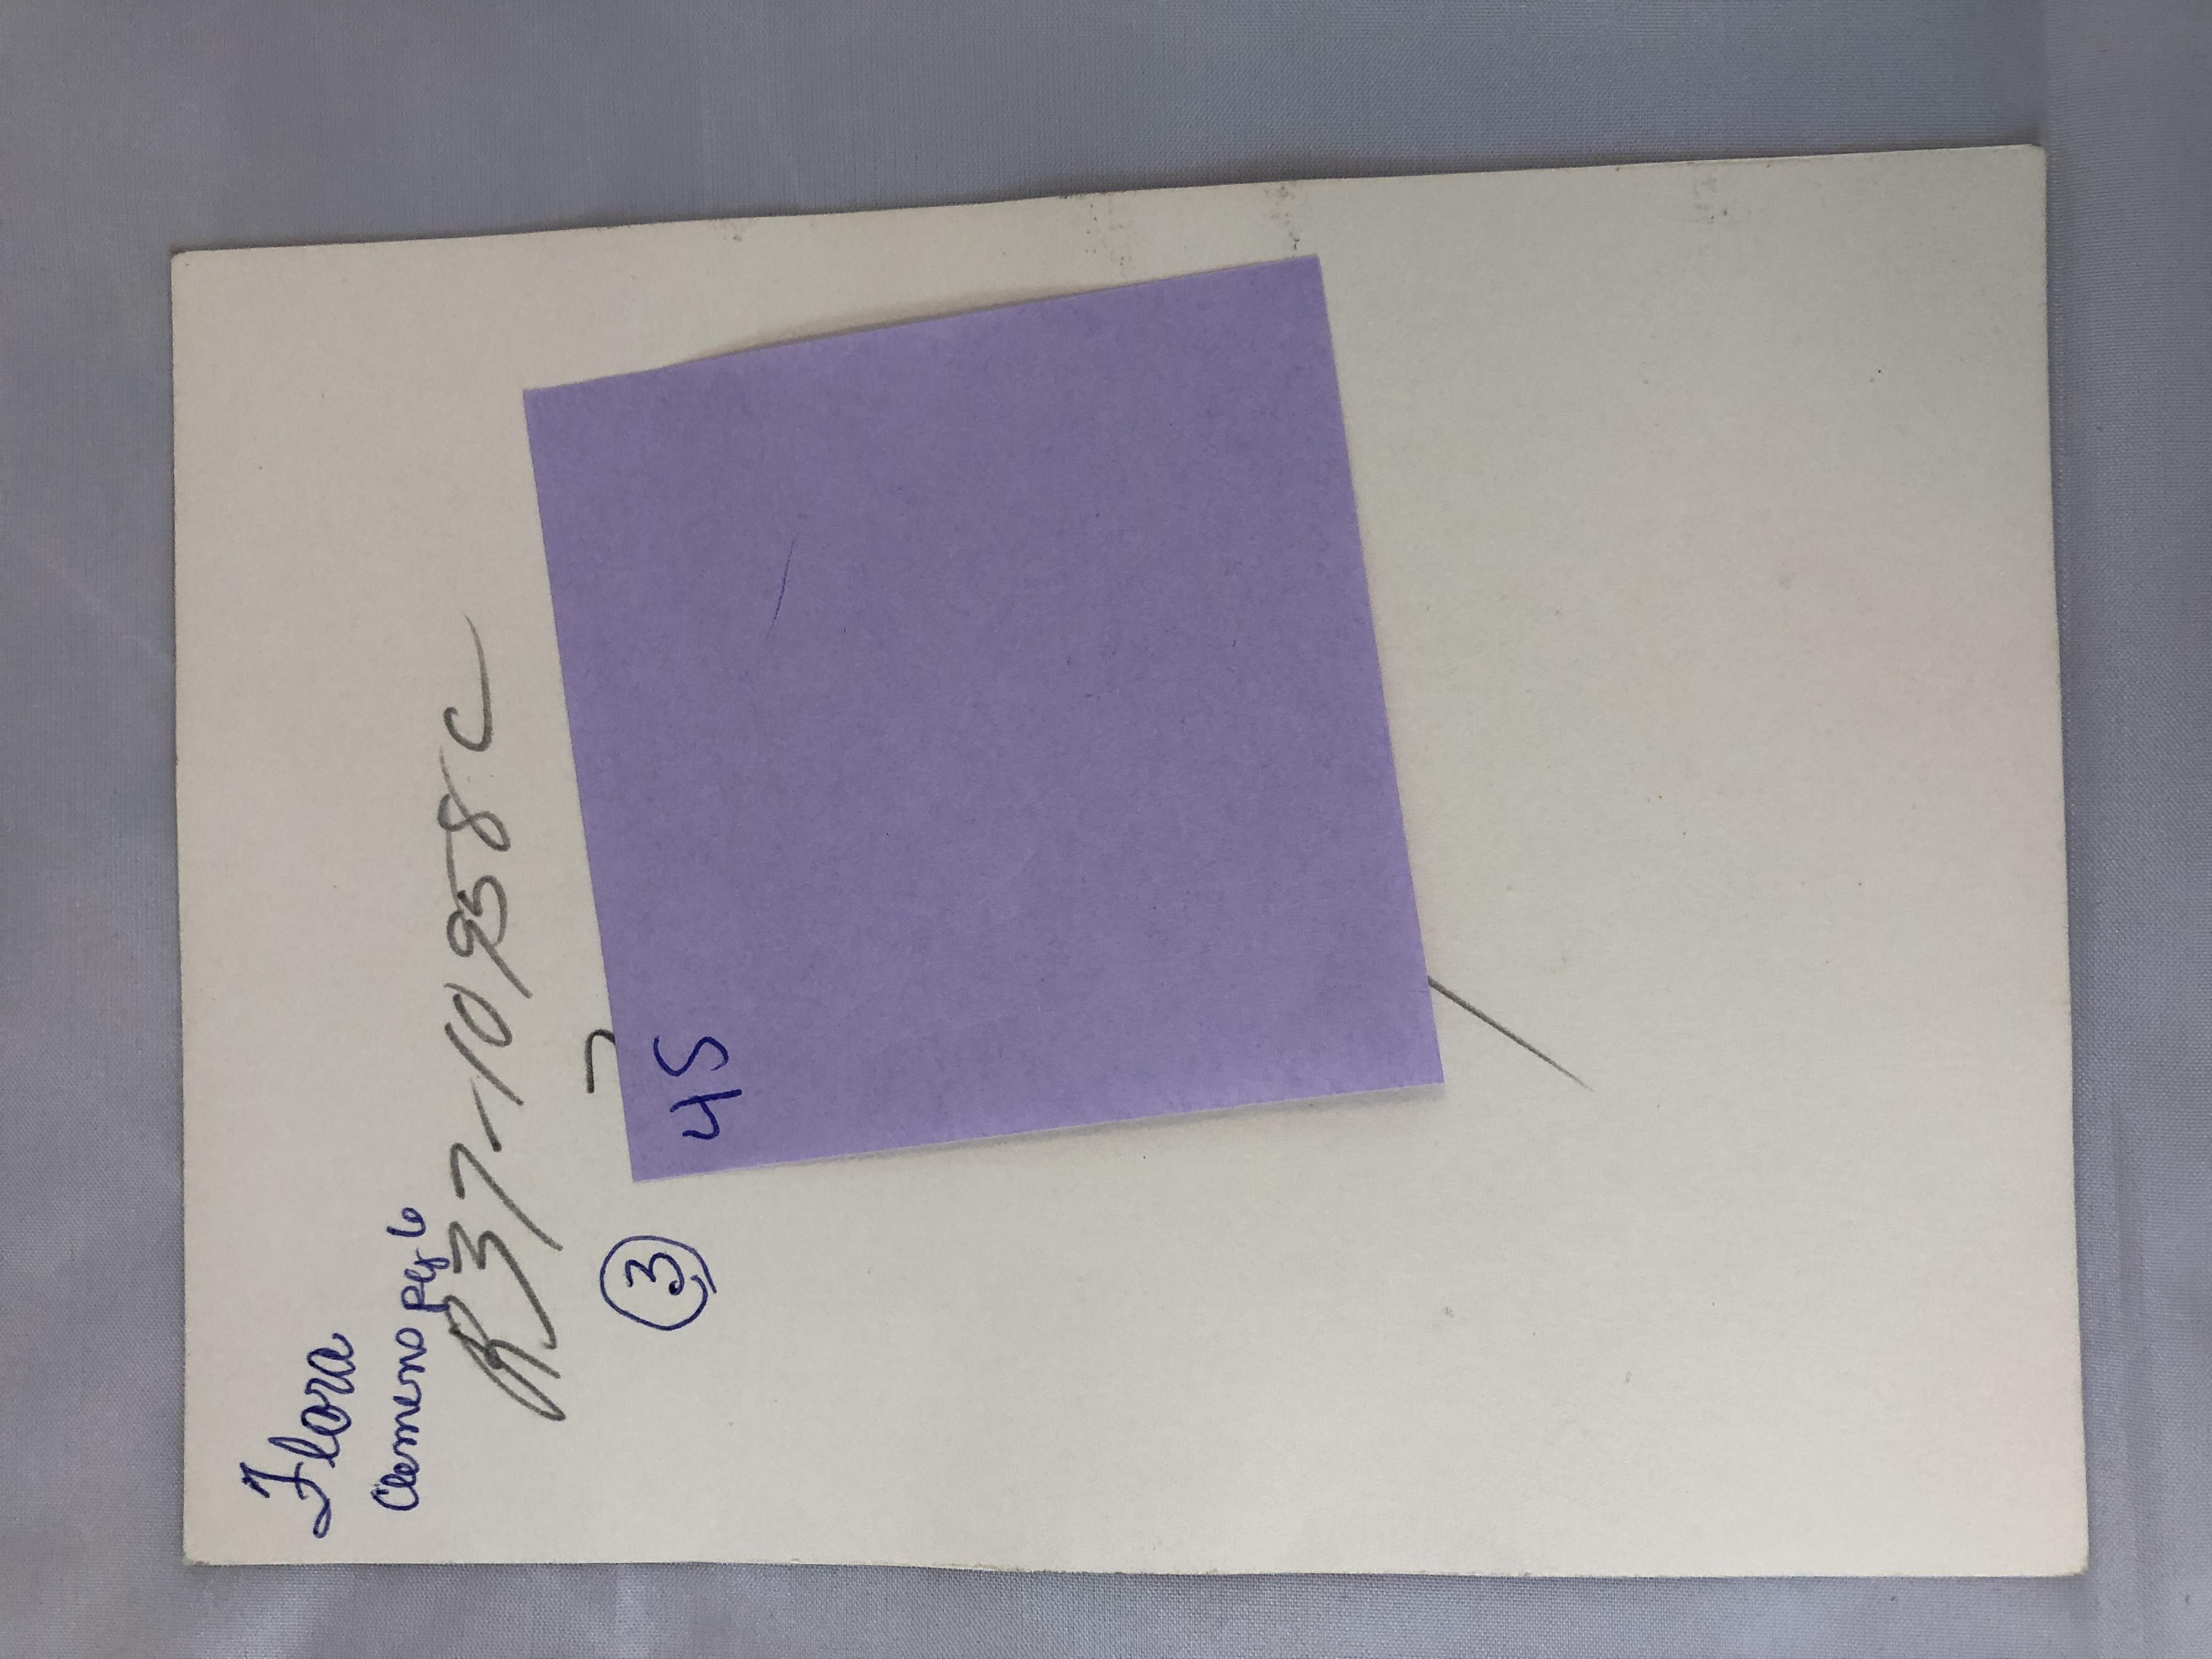 Flora
Clemens pg 6
R37-10958C
3
45